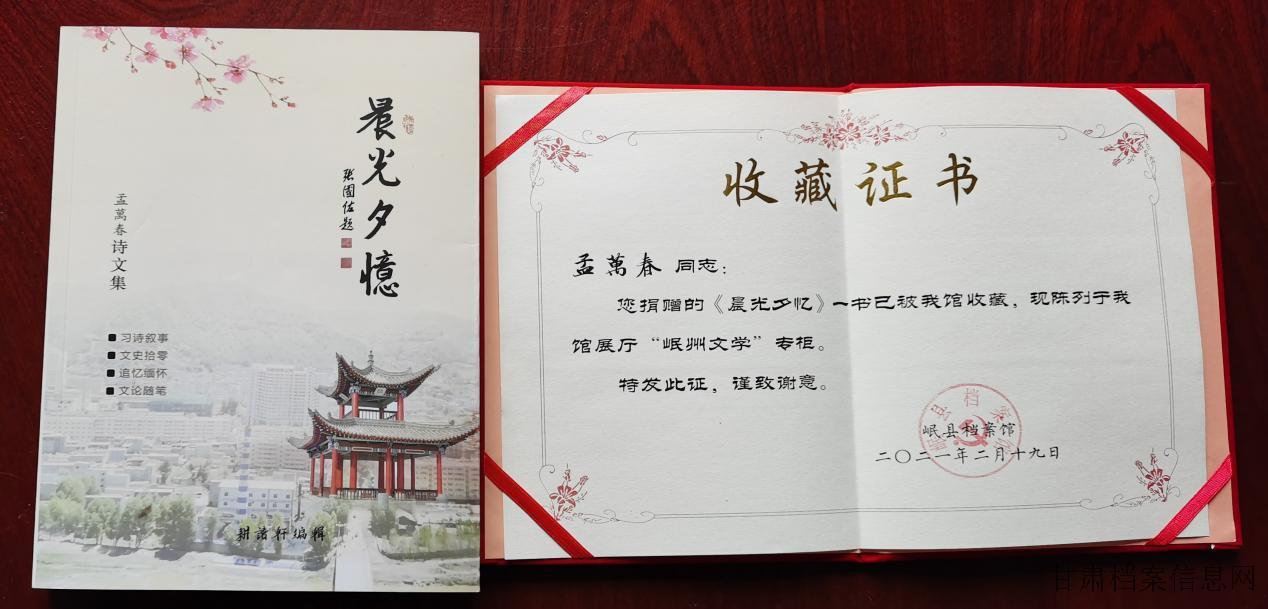 晨光夕憶
張國佐题
孟萬春诗文集
■习诗叙事
■文史拾零
■追忆缅怀
■文论随笔
耕讀軒编輯
收藏证书
孟萬春 同志：
您捐赠的《晨光夕忆》一书已被我馆收藏，现陈列于我
馆展厅“岷州文学”专柜。
特发此证，谨致谢意。
岷县档案馆
二〇二一年二月十九日
岷县档案馆
甘肃档案信息网